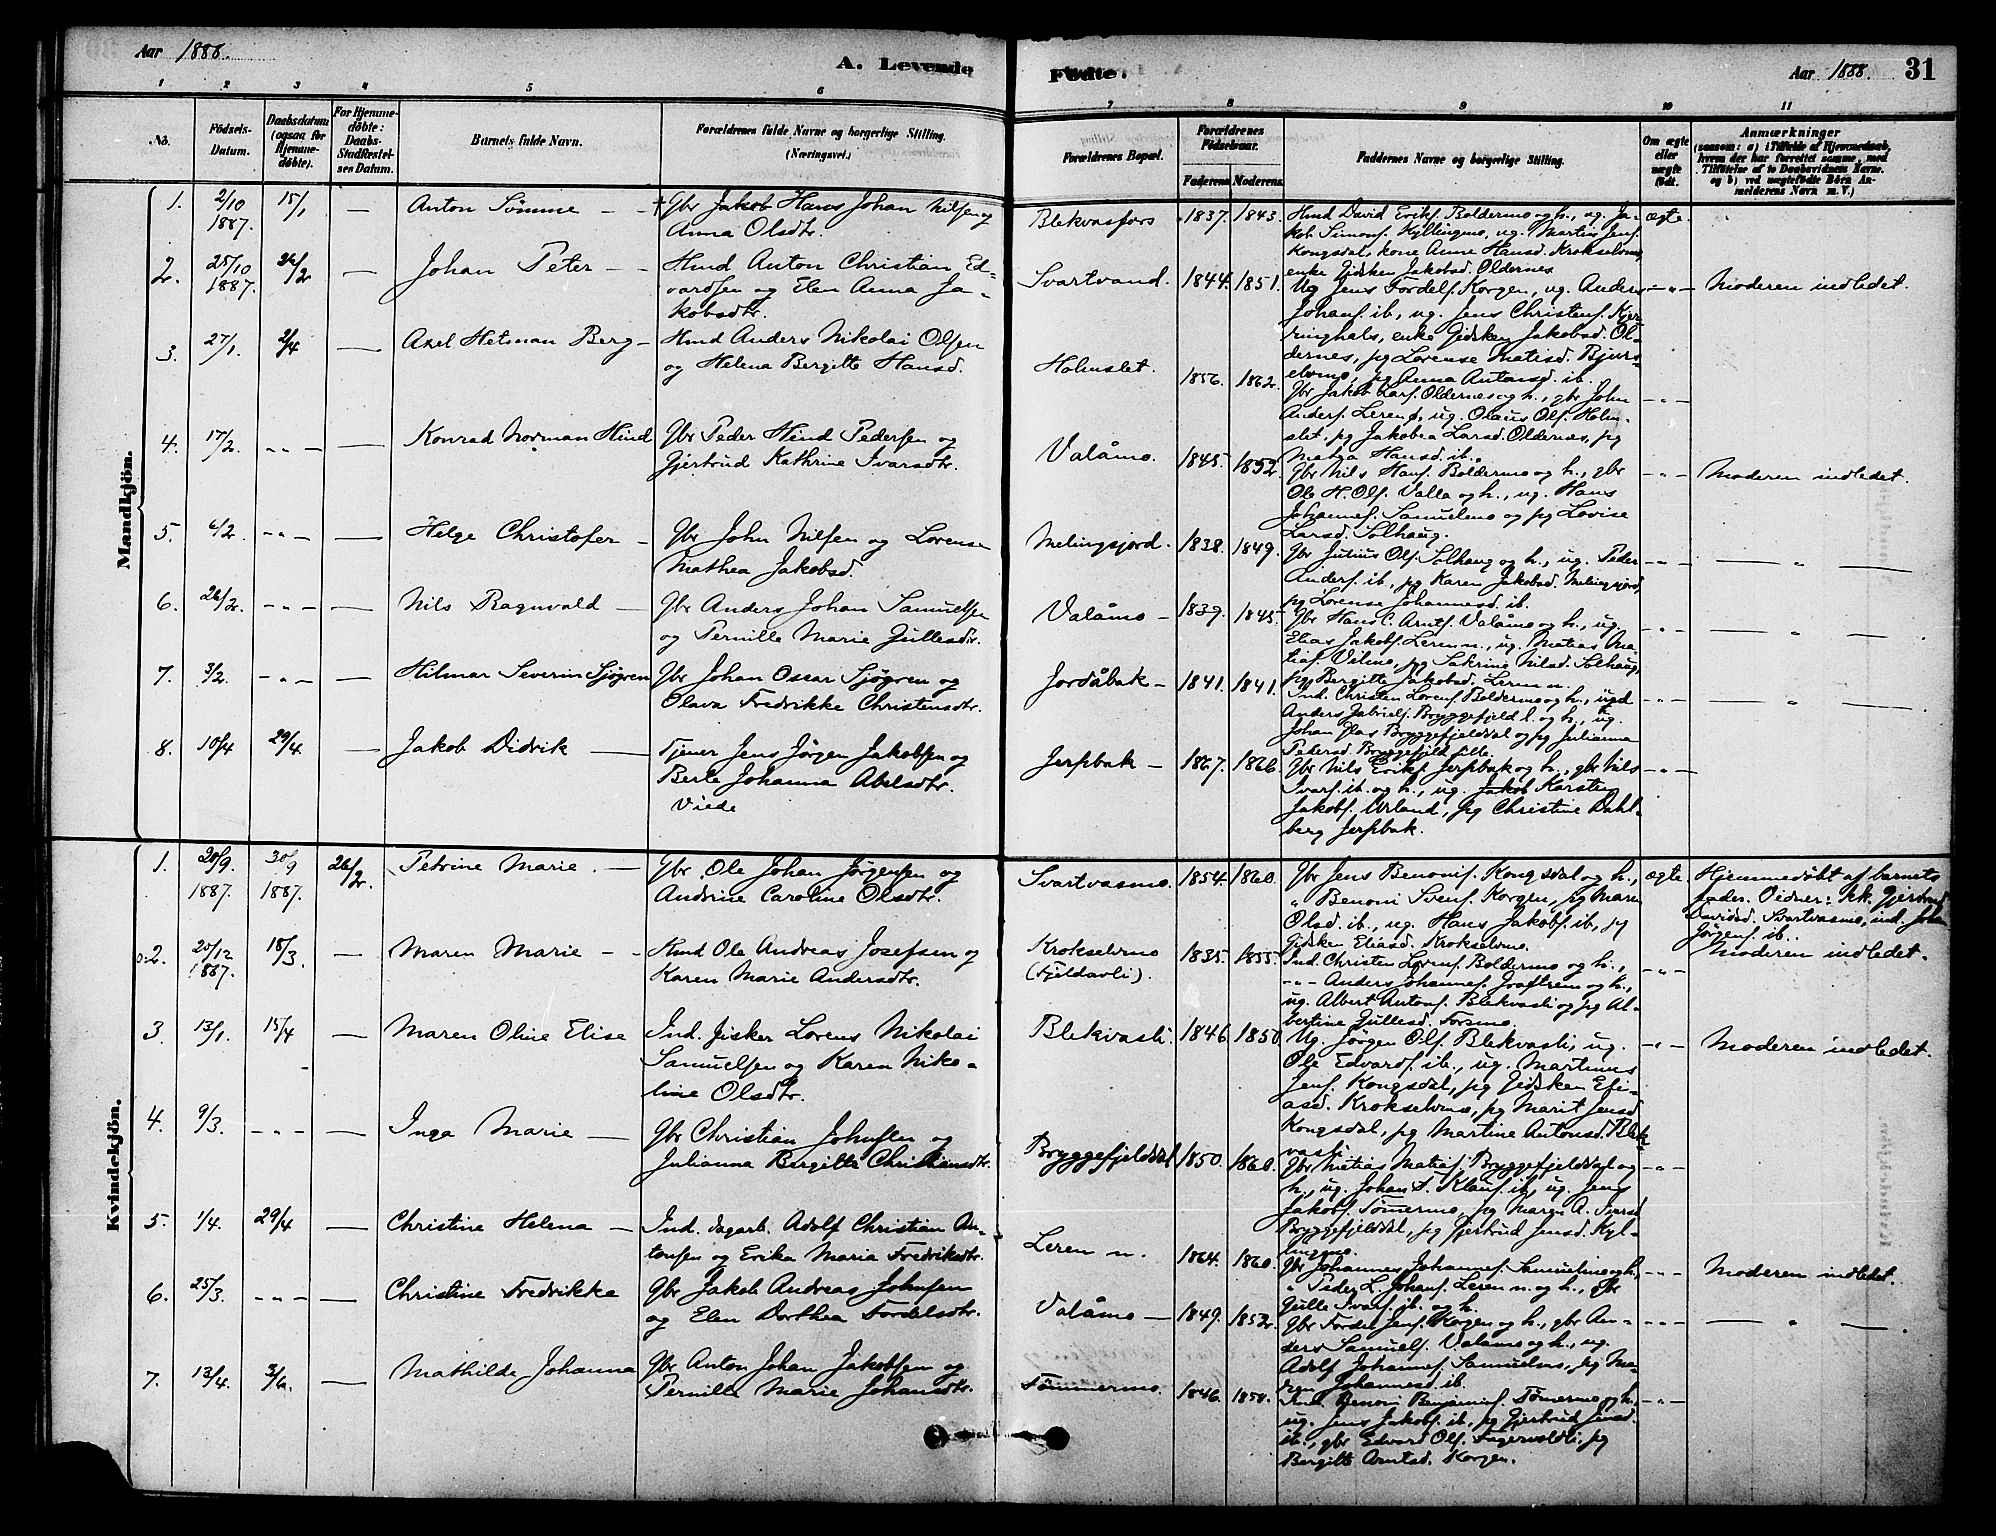 Aar 1888.
A. Levende Fødte.
Aar 1888. 31
1 2 3 4 5 6 7 8 9 10 11
No.
Fødsels-Datum.
Daabsdatum (ogsaa for Hjemmedøbte).
For Hjemmedøbte: Daabs-Stadfæstelses Datum.
Barnets fulde Navn.
Forældrenes fulde Navne og borgerlige Stilling. (Næringsvei.)
Forældrenes Bopæl.
Forældrenes Fødselsaar.
Faderens. Moderens.
Faddernes Navne og borgerlige Stilling.
Om ægte eller uægte født.
Anmærkninger
(saasom: a) i Tilfælde af Hjemmedaab, hvem der har forrettet samme, med Tilføielse af to Daabsvidners Navne. og b) ved uægtefødte Børn Anmelderens Navn m. V.)
Mandkjön.
1. 2/10 1887. 15/1 — Anton Sømme — Gbr Jakob Hans Johan Nilsen og
Anna Olsdtr.
Blekvasfors 1837. 1843. Hmd David Eriks. Boldermo og h., ug. Ja-
kob Simons. Kyllingmo, ug. Martin Jens.
Kongsdal, kone Anne Hansd. Krokselvmo,
enke Gidsken Jakobsd. Oldernes
ægte.
2. 25/10 1887. 26/2 — Johan Peter — Hmd Anton Christian Ed-
vardsen og Elen Anna Ja-
kobsdtr.
Svartvand. 1844. 1851. Ug Jens Fordels. Korgen, ug. Anders
Johans. ib, ug. Jens Christens. Kjer-
ringhals, enke Gidsken Jakobsd. Ol-
dernes, pg Lorense Matisd. Bjurs-
elvmo, pg Anna Antonsd. ib.
— „ — Moderen indledet.
3. 27/1. 2/4 — Axel Hetman Berg — Hmd Anders Nikolai Olsen
og Helena Bergitte Hansd.
Holmslet. 1856. 1862. Gbr Jakob Lars. Oldernes og h., gbr John
Anders. Leren ø, ug. Olaus Ols. Holm-
slet, pg Jakobea Larsd. Oldernes, pg
Hansd. ib.
— „ —
4. 17/2. — „ — — Konrad Norman Hind Gbr Peder Hind Pedersen og
Gjertrud Kathrine Ivarsdtr.
Valåmo. 1845. 1852. Gbr Nils Hans. Boldermo og h., gbr
Ole H. Ols. Valla og h., ug. Hans
Johannes. Samuelmo og pg Lovise
Larsd. Solhaug.
— „ — Moderen indledet.
5. 6/2. — „ — Helge Christofer — Gbr John Nilsen og Lorense
Mathea Jakobsd.
Melingsjord. 1838. 1849. Gbr Julius Ols. Solhaug og h., ug. Peder
Anders. ib, pg Karen Jakobsd. Melingsjord,
pg Lorense Johannesd. ib.
— „ — — „ —
6. 26/2. — „ — — Nils Ragnvald — Gbr Anders Johan Samuelsen
og Pernille Marie Gullesdtr.
Valåmo — 1839. 1845. Gbr Hans C. Arnts. Valåmo og h., ug.
Elias Jakobs. Leren n., ug. Matias Ma-
tias. Vilmo, pg Sakrine Nilsd. Solhaug,
pg Bergitte Jakobsd. Leren n.
— „ — — „ —
7. 3/2. — „ — — Hilmar Severin Sjøgren Gbr Johan Ossar Sjøgren og
Olava Fredrikke Christensdtr.
Jordåbak — 1841. 1841. Ind. Christen Lorens. Boldermo og h.,
Anders Gabriels. Bryggefjeld l. og h., ug.
Johan Bryggefjelddal og pg Julianna
Petersd. Bryggefjeld lille.
— „ — — „ —
8. 10/4 29/4. — Jakob Didrik — Tjener Jens Jørgen Jakobsen og
Berle Johanna Abelsdtr.
Viede
Jerpbak — 1867. 1866. Gbr Nils Eriks. Jerpbak og h., gbr Nils
Ivars. ib. og h., ug. Jakob Karsten
Jakobs. Urland, pg Christine Dahl-
berg Jerpbak.
— „ —
Kvindekjön.
1. 20/9. 1887. 30/9 1887. 26/2. Petrine Marie. — Gbr Ole Johan Jørgensen og
Andrine Caroline Olsdtr.
Svartvasmo. 1854. 1860. Gbr Jens Benonis. Kongsdal og h.,
„ Benoni Svens. Korgen, pg Maren
Olsd. ib., ug. Hans Jakobs. ib, pg
Gidsken Eliasd. Krokselvmo.
ægte. Hjemmedøbt af barnets
fader. Vidner: kk. Gjertrud
Davidsd. Svartvasmo, ind. Johan
Jørgens. ib.
2. 20/12 1887. 18/3. — Maren Marie — Hmd Ole Andreas Josefsen og
Karen Marie Andersdtr.
Krokselvmo
(Fjeldavli).
1835. 1855. Ind. Christen Lorens. Boldermo og h.,
— „ — Anders Johannes. og h.,
ug. Albert Antons. Blekvasli og pg Al-
bertine Gullesd. Forsmo.
— „ — Moderen indledet.
3. 13/1. 15/4 — Maren Oline Elise Ind. fisker Lorens Nikolai
Samuelsen og Karen Niko-
line Olsdtr.
Blekvasli. 1846. 1850 Ug. Jørgen Ols. Blekvasli, ug.
Ole Edvards. ib., ug. Martinus
Jens. Kongsdal, pg Gidsken Eli-
asd. Krokselvmo, pg Marit Jensd
Kongsdal, pg Martine Antonsd. Blek-
vasli.
— „ — Moderen indledet.
4. 9/3. — „ — — Inga Marie — Gbr Christian Johnsen og
Julianna Bergitte Christiansdtr.
Bryggefjelddal 1850. 1860. Gbr Matias Matias. Bryggefjelddal og
h., ug. Johan S. Klaus. ib, ug. Jens
Jakobs. Tømermo, pg Maren A. Ivarsd
Bryggefjelddal, pg Gjertrud Jensd. Kyl-
lingmo.
— „ —
5. 1/4. 29/4 — Christine Helena — Ind. dagarb. Adolf Christian An-
tonsen og Erika Maria Fredriksdtr.
Leren n. 1864. 1860. Gbr Johannes Johannes. Samuelmo og h.,
„ Peder L Johans. Leren n. og h., gbr
Gulle Ivars. ib. og h.
— „ — Moderen indledet.
6. 25/3. — „ — — Christine Fredrikke Gbr Jakob Andreas Johnsen
og Elen Dorthea Fordelsdtr.
Valåmo — 1849. 1852. Gbr Fordel Jens. Korgen og h., gbr An-
ders Samuels. Valåmo og h., ug.
Adolf Johannes. Samuelmo, pg Ma-
ren Johannesd. ib.
— „ — — „ —
7. 13/4. 3/6. — Mathilde Johanna Gbr Anton Johan Jakobsen og
Pernille Marie Johansdtr.
Tømmermo. 1846. 1850. Ind. Benoni Benjamins. Tømermo og h.
ug. Jens Jakobs. ib, pg Gjertrud Jensd.
ib., gbr Edvard Ols. Fagervoldli, pg
Bergitte Arntsd. Korgen.
— „ —